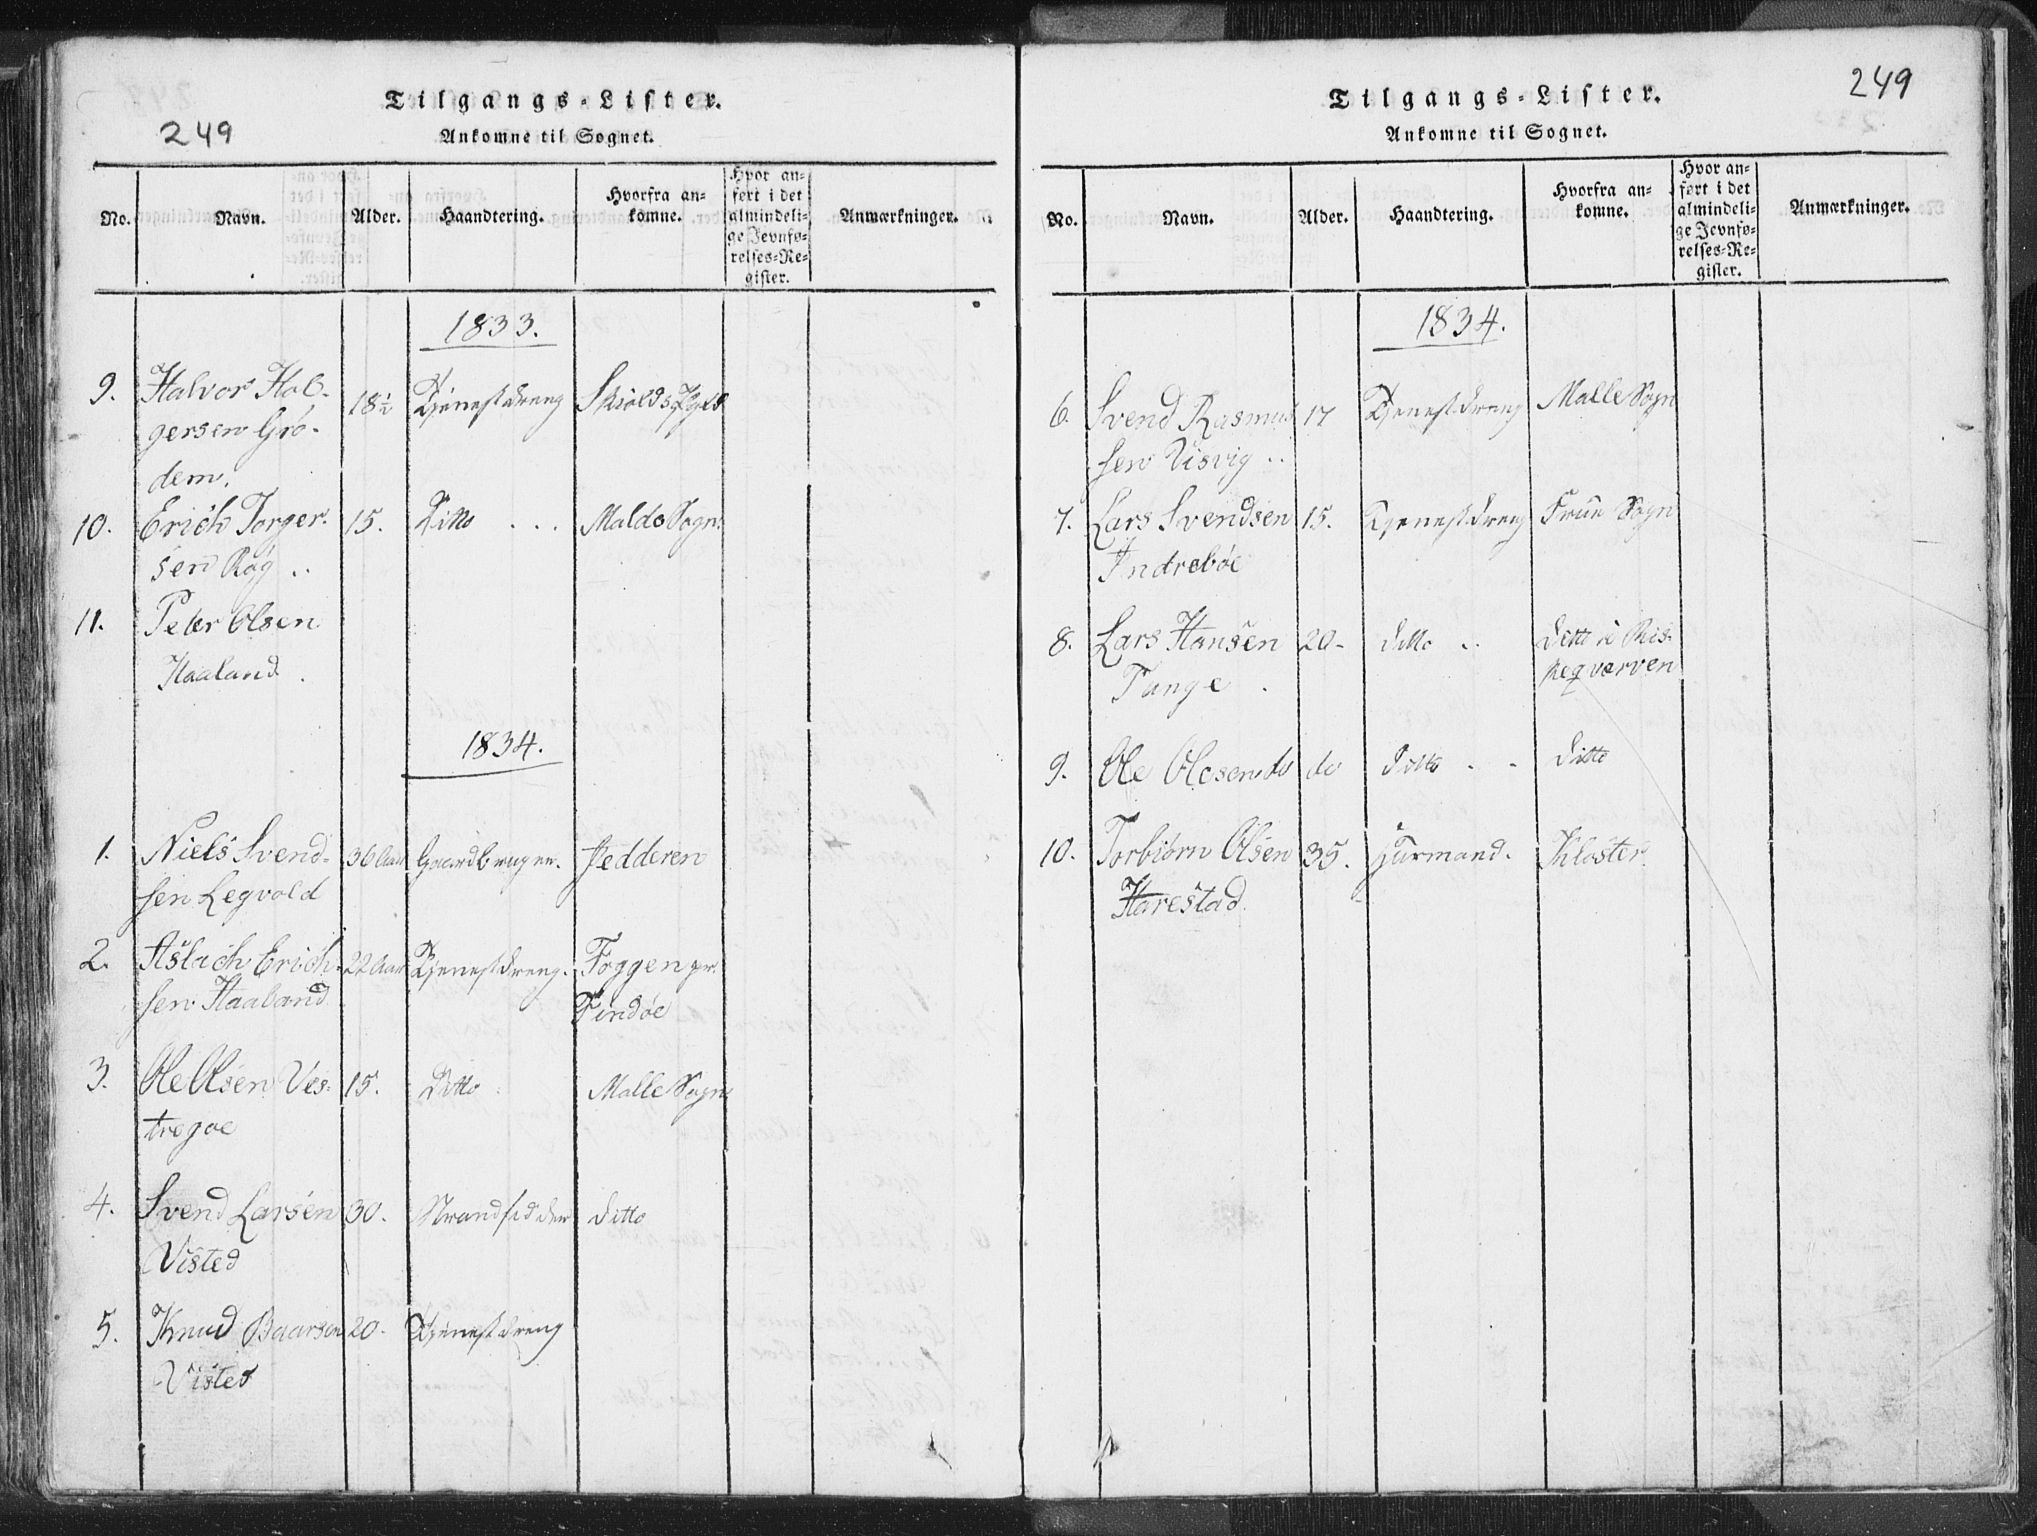 Tilgangs-Lister.
249
Ankomne til Sognet.
No. Navn. Alder. Haandtering. Hvorfra an-
komne. Hvor an-
ført i det
almindeli-
ge Jevnfø-
relses-Re-
gister. Anmærkninger.
1833.
9. Halvor Hol-
gersen Grö-
dem. 18½ Tjenestdreng
10. Erich Torger-
sen Røg .. 15. Ditto ... Malde Sogn
11. Peter Olsen
Haaland.
1834.
1. Niels Svend-
sen Legvold 36 Aar Gaardbruger. Jedderen
2. Aslach Erich-
sen Haaland 22 Aar Tjenestdreng. Foggen pr.
Findöe
3. Ole Olsen Ves-
tregae 15. Ditto Malle Sogn
4. Svend Larsen
Visted 30. Strandsidder ditto
5. Knud Baarsen
Visted 20- Tjenestdreng
Tilgangs-Lister.
249
Ankomne til Sognet.
No. Navn. Alder. Haandtering. Hvorfra an-
komne. Hvor an-
ført i det
almindeli-
ge Jevnfø-
relses-Re-
gister. Anmærkninger.
1834.
6. Svend Rasmus
sen Visvig .. 17 Tjenestdreng Malle Sogn
7. Lars Svendsen
Indreböe 15. Tjenestdreng Frue Sogn
8. Lars Hansen
Tange . 20- ditto .. ditto
9. Ole Olesen do do ditto - - ditto
10. Torbiörn Olsen
Harestad 35. Huusmand. Kloster.